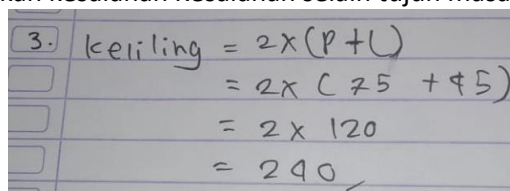 3. Keliling = 2x (P + L)
= 2x (75 + 45)
= 2 x 120
= 240